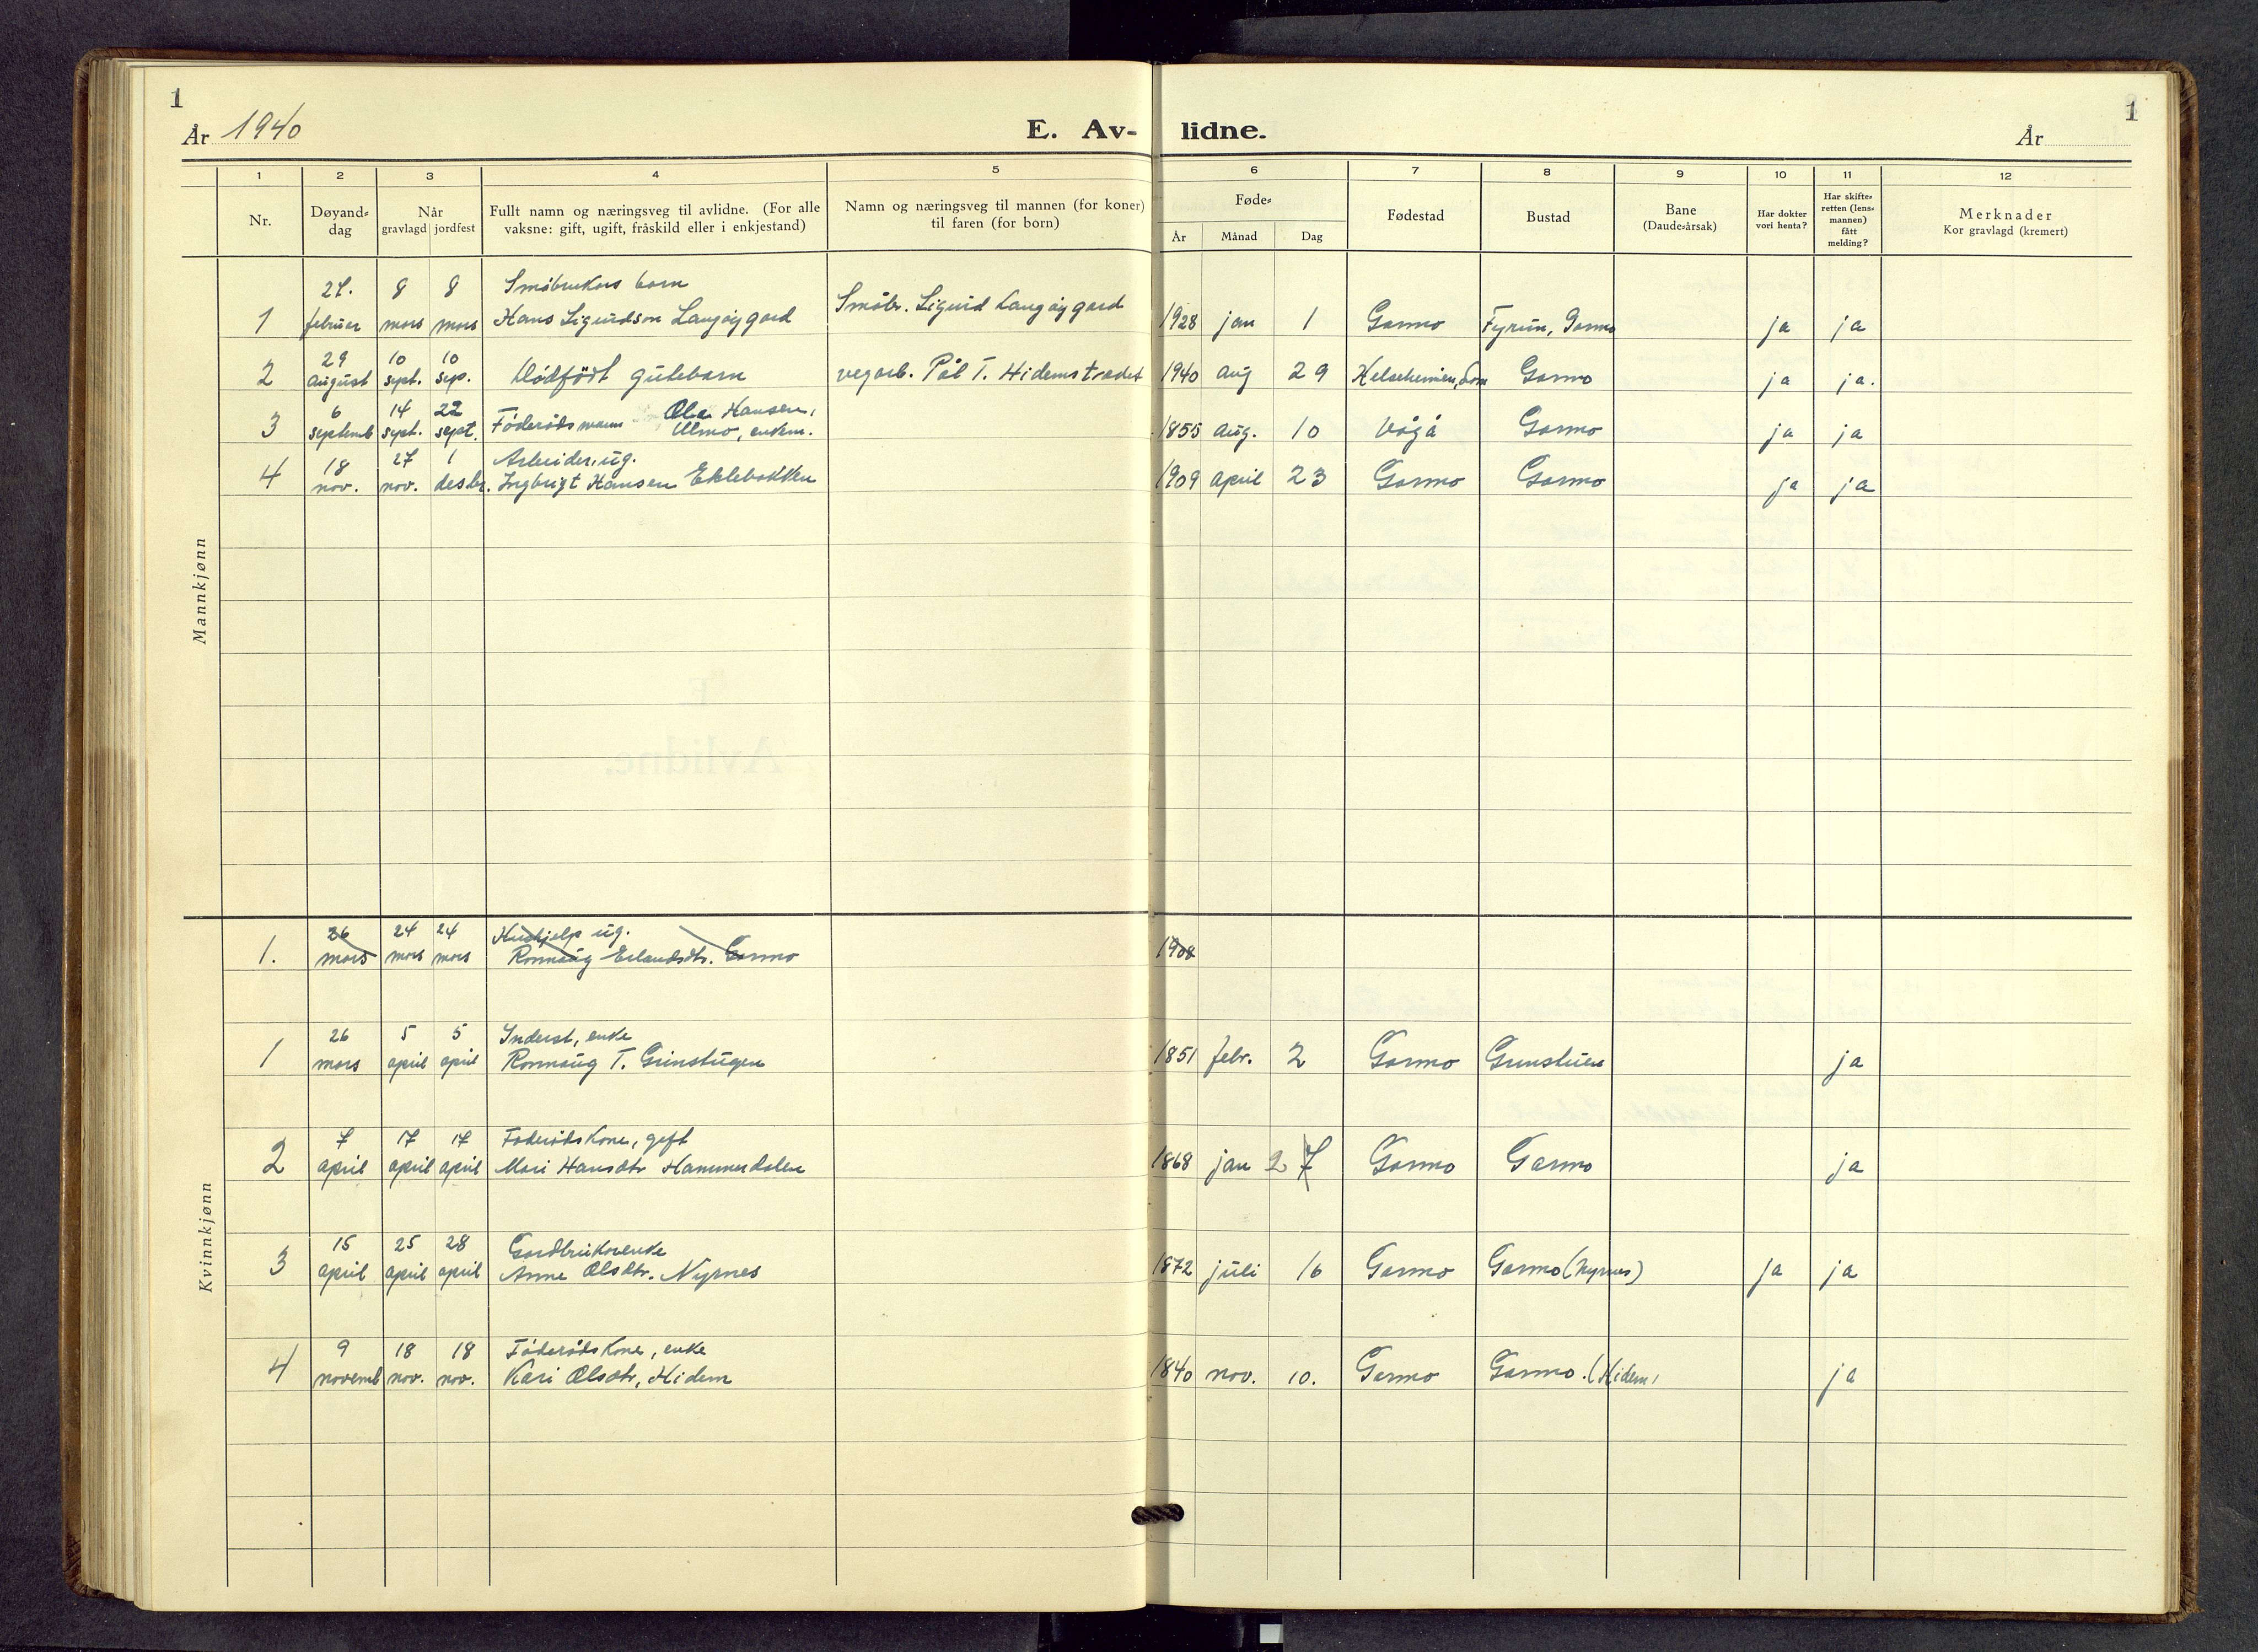 1
1
År 1940
E. Av-lidne.
År
1 2 3 4 5 6 7 8 9 10 11 12
Nr.
Døyand-dag
Når
gravlagd jordfest
Fullt namn og næringsveg til avlidne. (For alle
vaksne: gift, ugift, fråskild eller i enkjestand)
Namn og næringsveg til mannen (for koner)
til faren (for born)
Føde-
År Månad Dag
Fødestad
Bustad
Bane
(Daude-årsak)
Har dokter
vori henta?
Har skifte-
retten (lens-
mannen)
fått
melding?
Merknader
Kor gravlagd (kremert)
Mannkjønn
27. 8 8 Småbrukars barn
1 februar mars mars Hans Sigurdson Langøygard Småbr. Sigurd Langøygard 1928 jan 1 Garmo Fyrun, Garmo ja ja
29 10 10
2 august sept. sep. Dødfödt gutebarn vegarb. Pål T. Hidemstrædet 1940 aug 29 Helseheimen, Lom Garmo ja ja.
6 14 22 Ola Hansen,
3 septemb sept. sept. Föderådsmann Ulmo, enkem. 1855 aug. 10 Vågå Garmo ja ja
18 27 1 Arbeider, ug.
4 nov. nov. desbr. Ingbrigt Hansen Eklebakken 1909 april 23 Garmo Garmo ja ja
Kvinnkjønn
26 24 24 Hushjelp ug.
1. mars mars mars Ronnaug Erlandsdtr. Garmo 1908
26 5 5 Inderst, enke
1 mars april april Ronnaug T. Grinstugen 1851 febr. 2 Garmo Grinstuen ja
7 17 17 Föderådskone, gift
2 april april april Mari Hansdtr Hammerdalen 1868 jan 27 Garmo Garmo ja
15 25 28 Gardbrukarenke
3 april april april Anne Olsdtr. Nyrnes 1872 juli 16 Garmo Garmo (Nyrnes) ja ja
9 18 18 Föderådskone, enke
4 novemb nov. nov. Kari Olsdtr, Hidem 1840 nov. 10. Garmo Garmo. (Hidem) ja